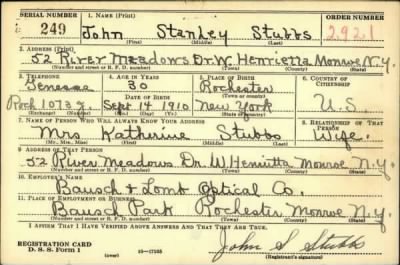 SERIAL NUMBER 1. NAME (Print) ORDER NUMBER
249 John Stanley Stubbs 2921
(First) (Middle) (Last)
2. ADDRESS (Print)
52 River Meadows Dr. W. Henrietta Monroe N.Y.
(Number and street or R. F. D. number) (Town) (County) (State)
3. TELEPHONE 4. AGE IN YEARS 5. PLACE OF BIRTH 6. COUNTRY OF CITIZENSHIP
Genesee 30 Rochester
DATE OF BIRTH (Town or county)
Roch 1073 J. Sept 14 1910 New York U.S.
(Exchange) (Number) (Mo.) (Day) (Yr.) (State or country)
7. NAME OF PERSON WHO WILL ALWAYS KNOW YOUR ADDRESS 8. RELATIONSHIP OF THAT PERSON
Mrs Katherine Stubbs Wife.
(Mr., Mrs., Miss) (First) (Middle) (Last)
9. ADDRESS OF THAT PERSON
52 River Meadows Dr. W Henrietta Monroe N.Y.
(Number and street or R. F. D. number) (Town) (County) (State)
10. EMPLOYER'S NAME
Bausch & Lomb Optical Co.
11. PLACE OF EMPLOYMENT OR BUSINESS
Bausch Park Rochester Monroe N.Y.
(Number and street or R. F. D. number) (Town) (County) (State)
I AFFIRM THAT I HAVE VERIFIED ABOVE ANSWERS AND THAT THEY ARE TRUE.
REGISTRATION CARD
D. S. S. Form 1 (over) John S Stubbs
(Registrant's signature)